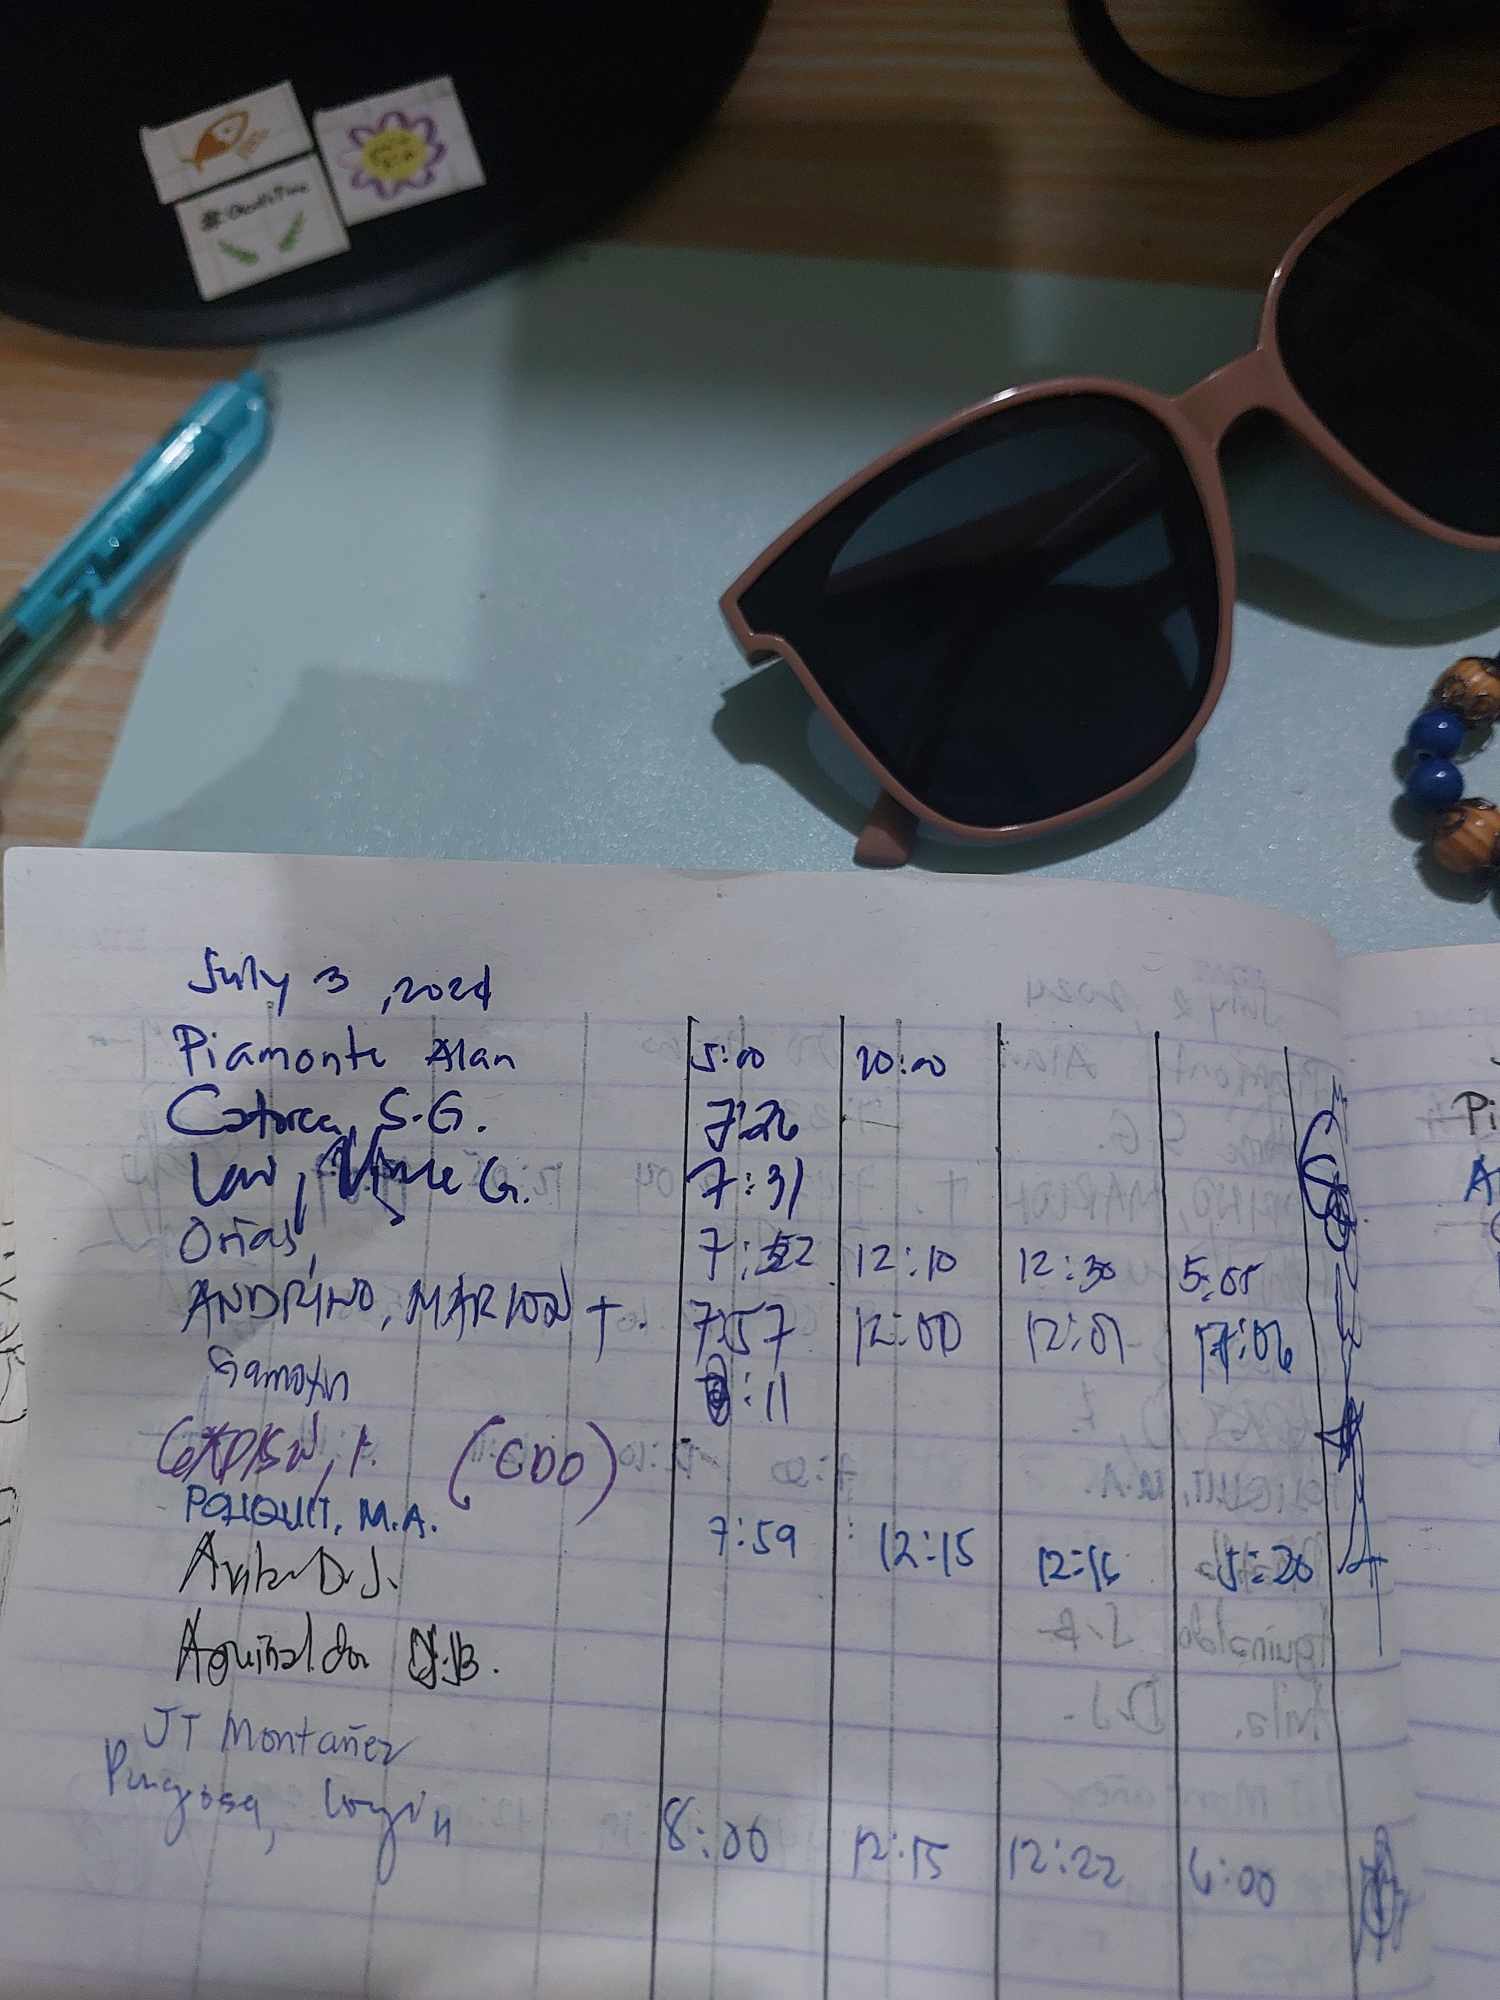 July 3, 2024
Piamonte Alan 5:00 20:00
Catorce, S.G. 7:26
Law, Vince G. 7:31
Orias, 7:52 12:10 12:30 5:05
ANDRINO, MARION T. 7:57 12:00 12:01 17:06
:11
(CDO)
POLIQUIT, M.A. 7:59 12:15 12:16 5:20
Avila D.J.
Aguinaldo J.B.
JT Montañez
Pungosa, 8:00 12:15 12:22 6:00
Pi
A